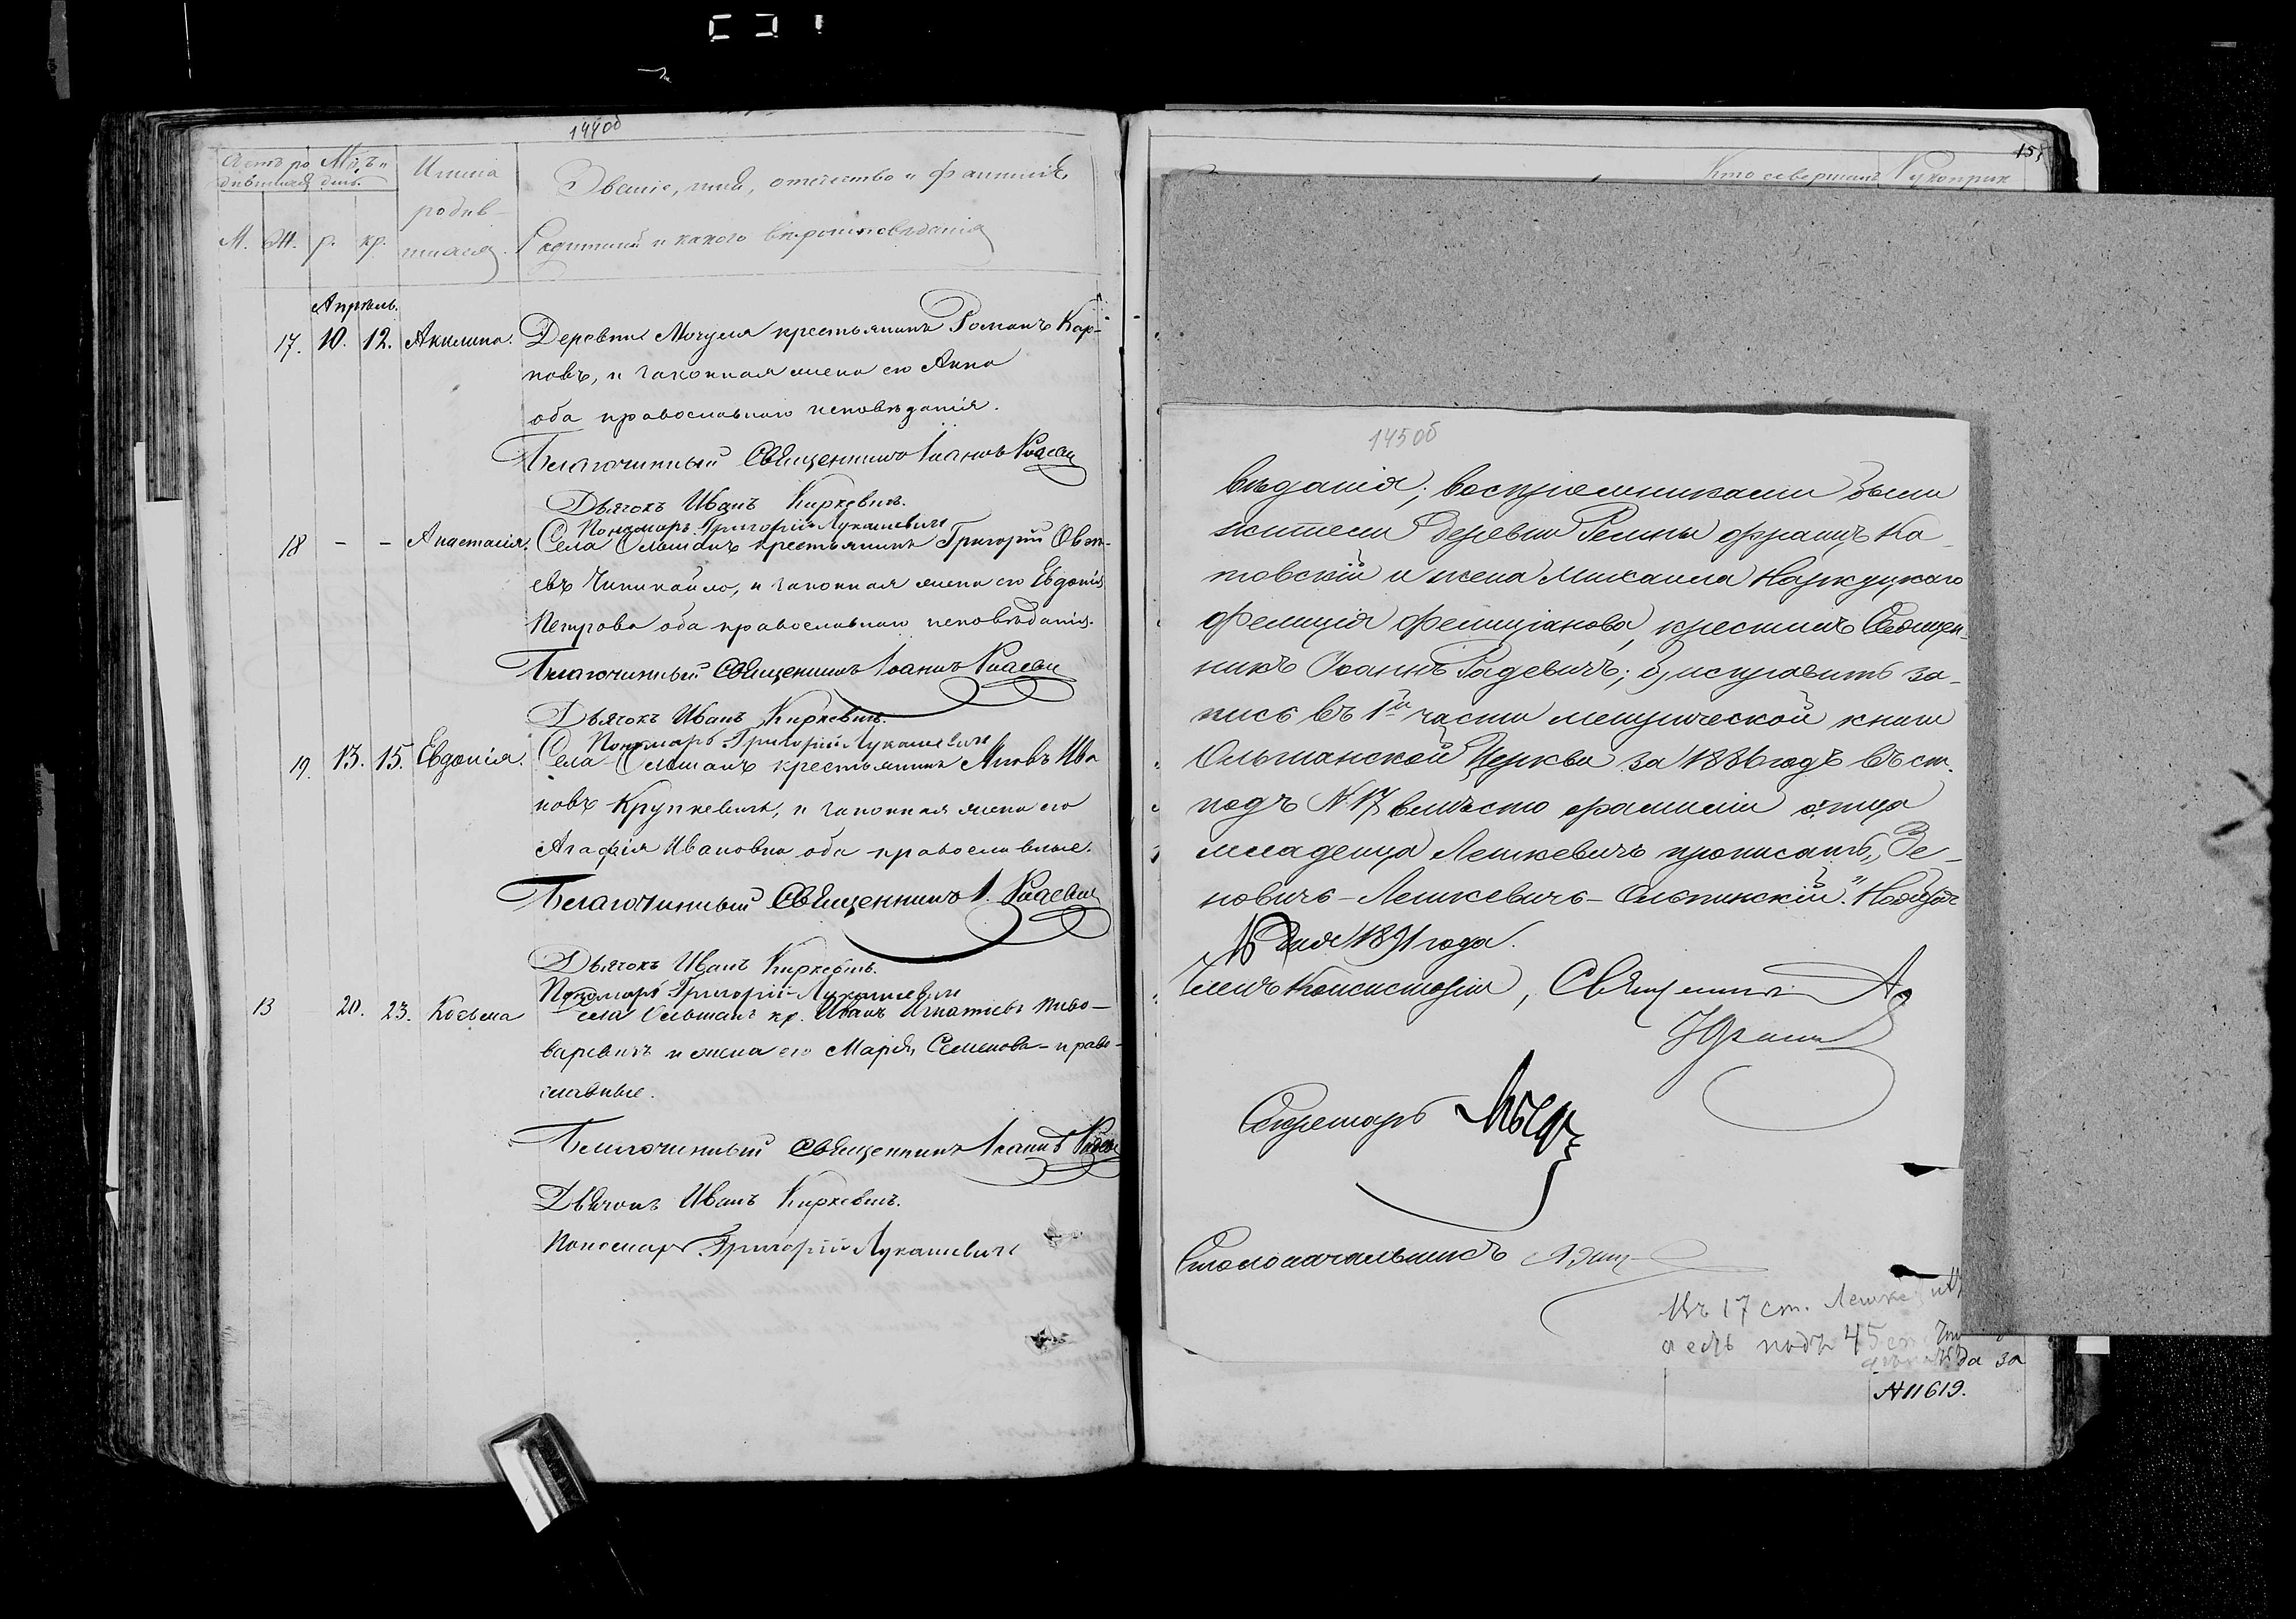 144об
Счетъ ро Мѣ. и
дившихся день.
Имена
родив-
шихся.
Званіе, имя, отчество и фамилія
Родителей и какого вѣроисповѣданія
М. Ж. р. кр.
Апрѣль.
17. 10. 12. Акилина. Деревни Мочуля крестьянинъ Романъ Кар-
повъ, и законная жена его Анна
оба православнаго исповѣданія.
Благочинный Священникъ Іоаннъ Радевич
Дьячокъ Иванъ Киркевичъ.
Пономарь Григорій Лукашевичъ
18 - - Анастасія. Села Ольшанъ крестьянинъ Григорій
евъ Чипикайло, и законная жена его Евдокія
Петрова оба православнаго исповѣданія.
Благочинный Священникъ Іоаннъ Радевич
Дьячокъ Иванъ Киркевичъ.
Пономарь Григорій Лукашевичъ
19. 13. 15. Евдокія. Села Ольшанъ крестьянинъ Яковъ Ива
новъ Крупкевичъ, и законная жена его
Агафія Ивановна оба православные.
Благочинный Священникъ І. Радевич
Дьячокъ Иванъ Киркевичъ.
Пономарь Григорій Лукашевичъ
13 20. 23. Косьма Села Ольшанъ кр. Иванъ Игнатьевъ Пиво-
варевичъ и жена его Марія Семенова - право-
славные.
Благочинный Священникъ Іоаннъ Радевич
Дьячокъ Иванъ Киркевичъ.
Пономарь Григорій Лукашевичъ
Кто совершалъ Рукоприк
145об
вѣданія; воспріемниками были
жители деревни Францъ Ко
товскій и жена Михаила
Фелиція Фелиціанова, крестилъ Священ-
никъ Іоаннъ Радевичъ; б, исправить за-
пись въ 1й части метрической книги
Ольшанской Церкви за 1886 годъ въ ст.
подъ № 17 вмѣсто фамиліи отца
младенца Лешкевичъ прописать, „Зе-
новичъ-Лешкевичъ-Ольпинскій."
16 1891 года.
Членъ Консисторіи, Священникъ
Секретарь
Столоначальникъ
17 ст.
подъ 45
за
№ 11619.